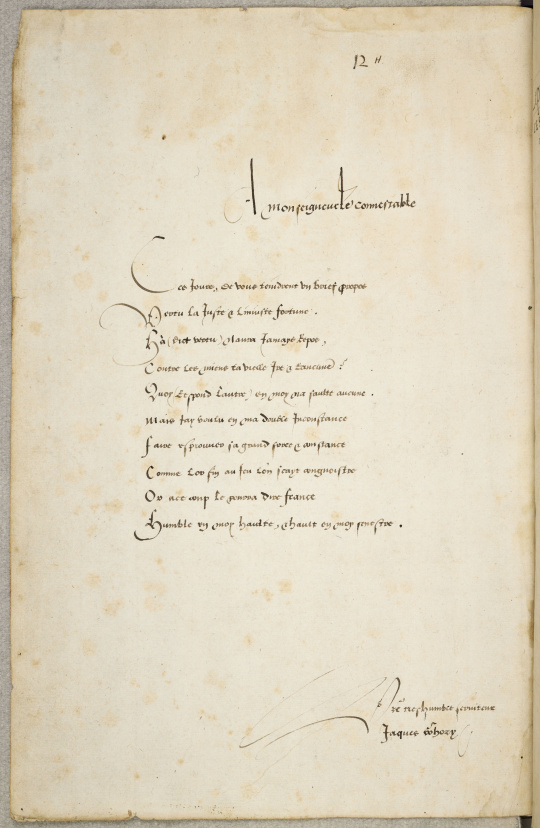 12
A monseigneur le connestable
Ces Jours, de vous tindrent vn brief propos
Vertu la Juste & linjuste fortune .
Hà (dict vertu) naura Jamays repos,
Contre les miens ta vieille Ire & rancune ?
Quoy respond l'autre) en moy na faulte aucune .
Mais Jay voulu en ma double Inconstance
Faire esprouver sa grand force & constance
Comme lor fin au feu lon scayt congnoistre
Or a ce coup le pourra dire france
Humble en moy haulte, & hault en moy senestre .
vre treshumble seruiteur
Jaques Gohory